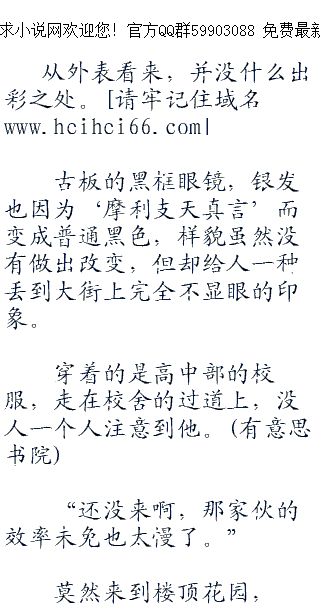 求小说网欢迎您! 官方QQ群59903088 免费最新
从外表看来，并没什么出
彩之处。[请牢记住域名
www.hcihci66.com|
古板的黑框眼镜，银发
也因为‘摩利支天真言’而
变成普通黑色，样貌虽然没
有做出改变，但却给人一种
丢到大街上完全不显眼的印
象。
穿着的是高中部的校
服，走在校舍的过道上，没
人一个人注意到他。(有意思
书院)
“还没来啊，那家伙的
效率未免也太慢了。”
莫然来到楼顶花园，